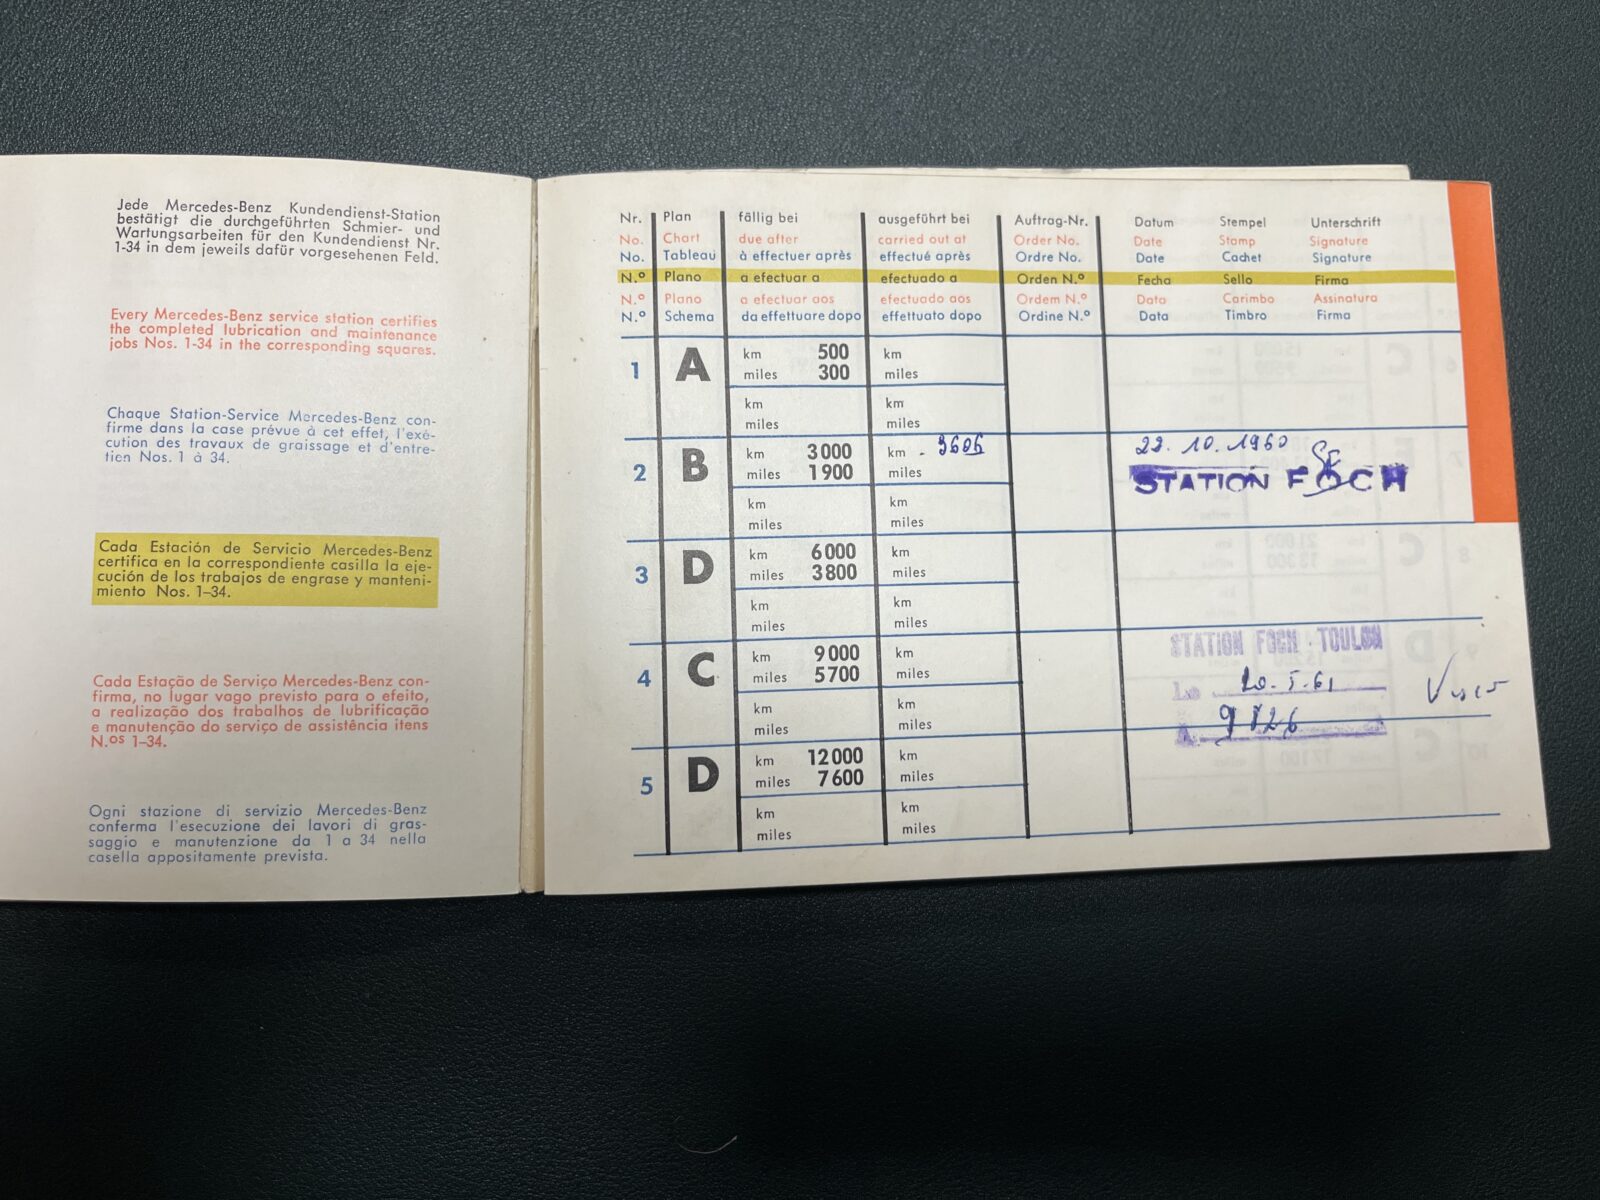 Jede Mercedes-Benz Kundendienst-Station
bestätigt die durchgeführten Schmier- und
Wartungsarbeiten für den Kundendienst Nr.
1-34 in dem jeweils dafür vorgesehenen Feld.
Every Mercedes-Benz service station certifies
the completed lubrication and maintenance
jobs Nos. 1-34 in the corresponding squares.
Chaque Station-Service Mercedes-Benz con-
firme dans la case prévue à cet effet, l'exé-
cution des travaux de graissage et d'entre-
tien Nos. 1 à 34.
Cada Estación de Servicio Mercedes-Benz
certifica en la correspondiente casilla la eje-
cución de los trabajos de engrase y manteni-
miento Nos. 1-34.
Cada Estação de Serviço Mercedes-Benz con-
firma, no lugar vago previsto para o efeito,
a realização dos trabalhos de lubrificação
e manutenção do serviço de assistência itens
N.os 1-34.
Ogni stazione di servizio Mercedes-Benz
conferma l'esecuzione dei lavori di gras-
saggio e manutenzione da 1 a 34 nella
casella appositamente prevista.
Nr. Plan fällig bei ausgeführt bei Auftrag-Nr. Datum Stempel Unterschrift
No. Chart due after carried out at Order No. Date Stamp Signature
No. Tableau à effectuer après effectué après Ordre No. Date Cachet Signature
N.º Plano a efectuar a efectuado a Orden N.º Fecha Sello Firma
N.º Plano a efectuar aos efectuado aos Ordem N.º Data Carimbo Assinatura
N.º Schema da effettuare dopo effettuato dopo Ordine N.º Data Timbro Firma
1 A km 500 km
miles 300 miles
km km
miles miles
2 B km 3000 km 3606 22.10.1960
miles 1900 miles STATION FOCH
km km
miles miles
3 D km 6000 km
miles 3800 miles
km km
miles miles
STATION FOCH - TOULON
4 C km 9000 km
miles 5700 miles Le 20.5.61
km km 9826
miles miles
5 D km 12000 km
miles 7600 miles
km km
miles miles